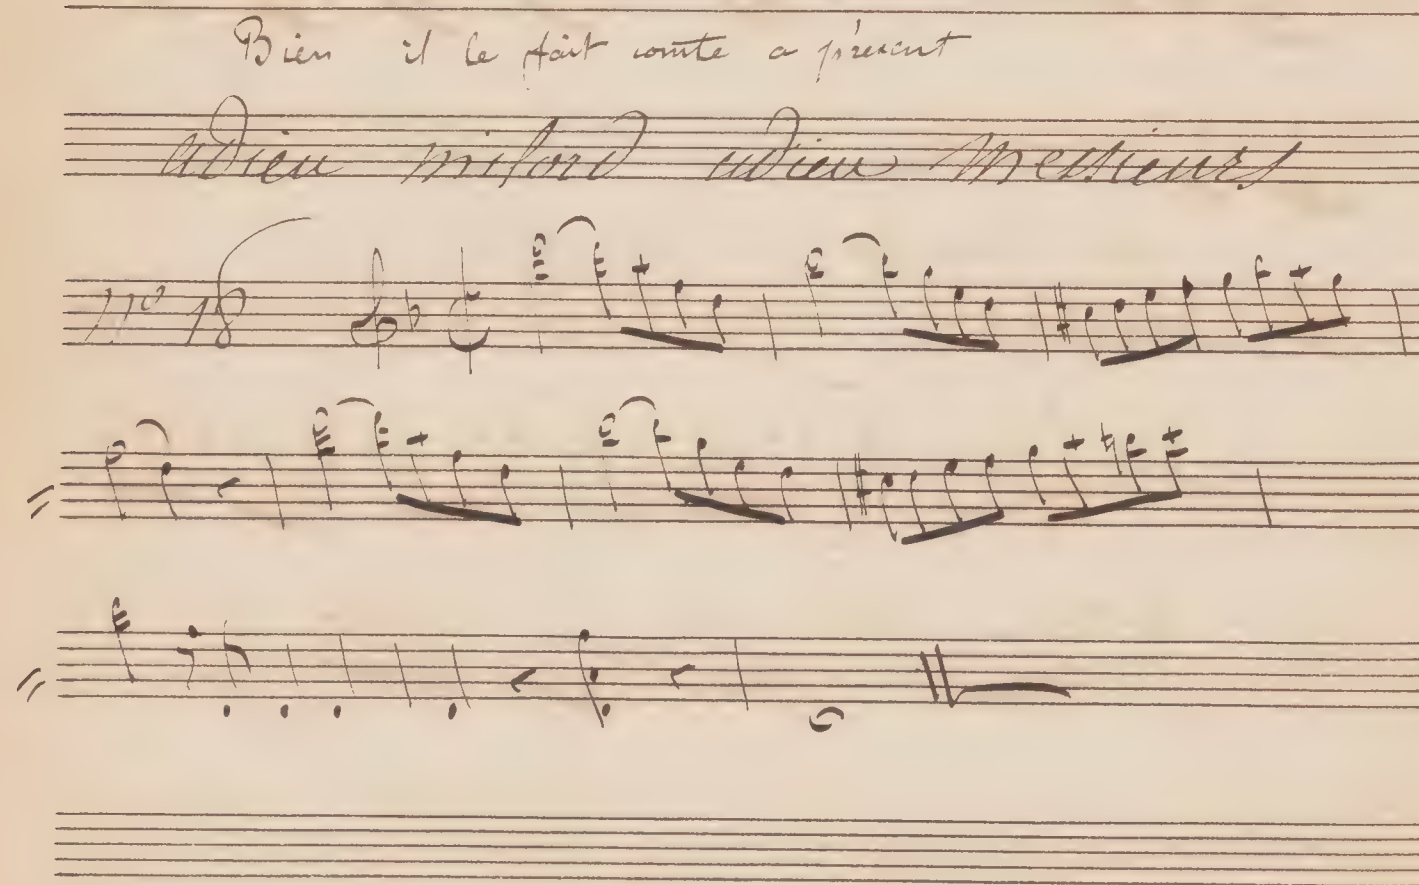 Bien il le fait comte a présent
adieu milord adieu Messieurs
No 18